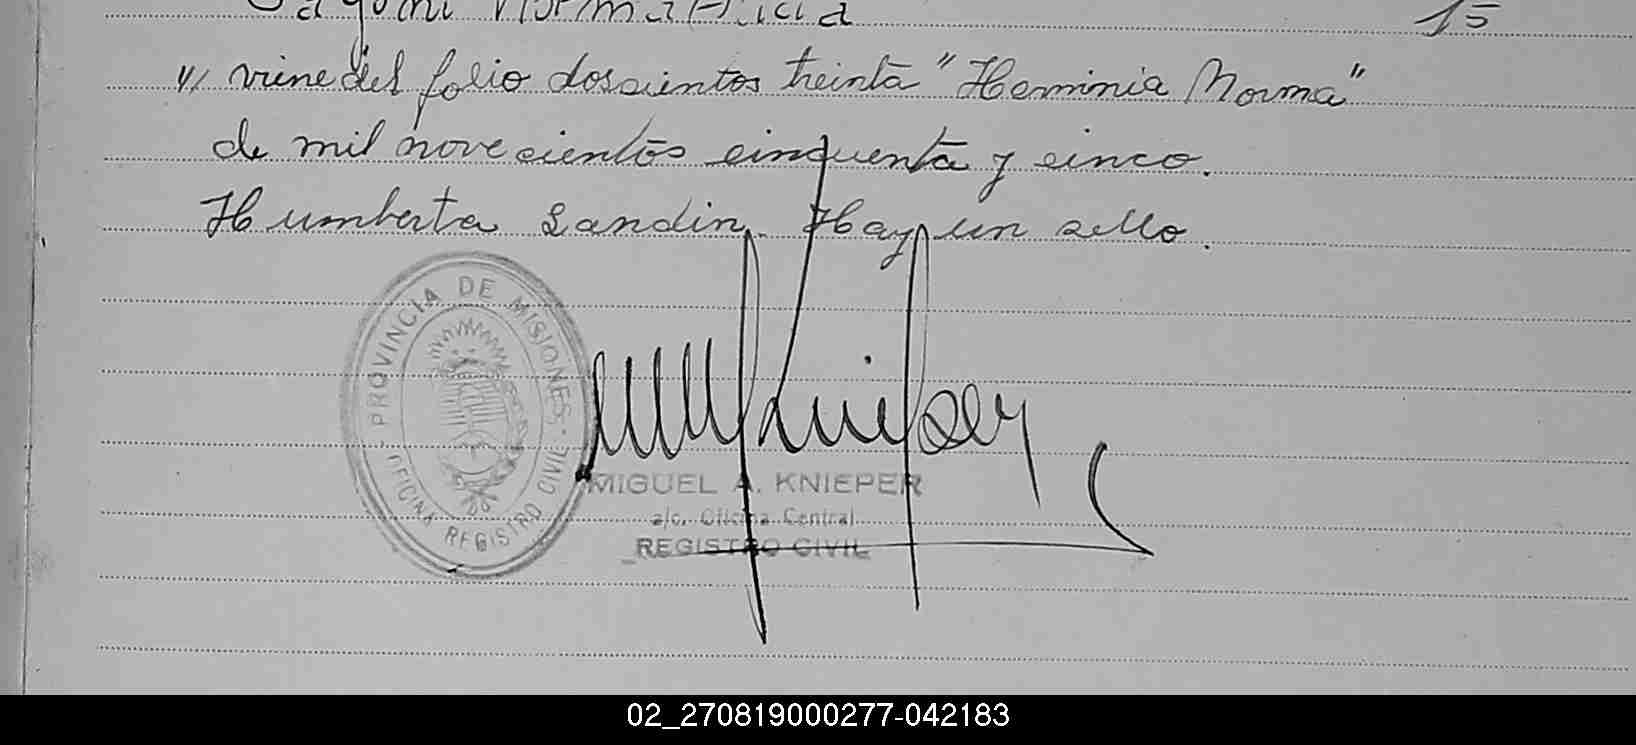 15
"/ viene del folio doscientos treinta "Herminia Norma"
de mil novecientos cinquenta y cinco.
Humberta Landin. Hay un sello.
PROVINCIA DE MISIONES
OFICINA REGISTRO CIVIL
MIGUEL A. KNIEPER
a/c. Oficina Central
REGISTRO CIVIL
02_270819000277-042183